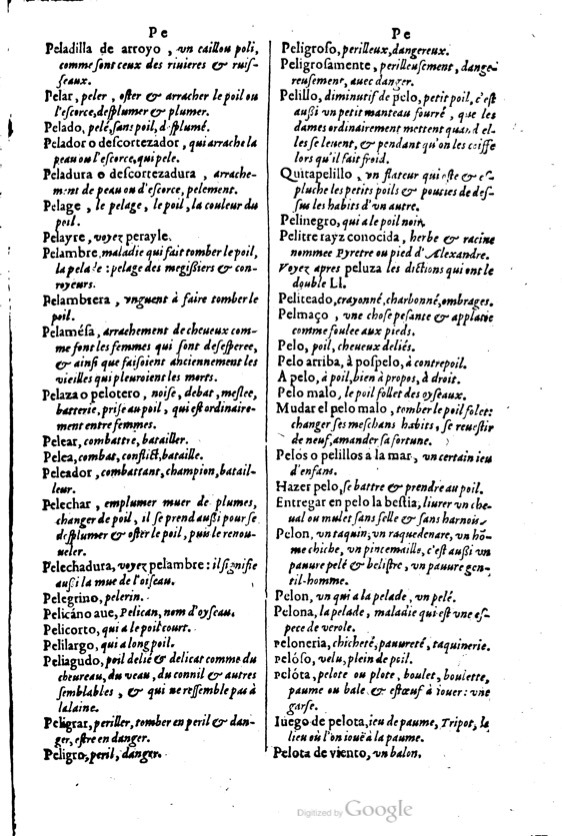 Pe
Peladilla de arroyo , vn caillou poli,
comme sont ceux des riuieres & ruis-
seaux.
Pelar, peler , oster & arracher le poil ou
l'escorce, desplumer & plumer.
Pelado, pelé, sans poil, desplumé.
Pelador o descortezador , qui arrache la
peau ou l'escorce, qui pele.
Peladura o descortezadura , arrache-
ment de peau ou d'escorce, pelement.
Pelage , le pelage, le poil, la couleur du
poil.
Pelayre, voyez perayle.
Pelambre, maladie qui fait tomber le poil,
la pelade : pelage des megissiers & con-
royeurs.
Pelambrera , vnguent à faire tomber le
poil.
Pelamésa, arrachement de cheueux com-
me font les femmes qui sont desesperee,
& ainsi que faisoient anciennement les
vieilles qui pleuroient les morts.
Pelaza o pelotero , noise, debat, meslee,
batterie, prise au poil , qui est ordinaire-
ment entre femmes.
Pelear, combattre, batailler.
Pelea, combat, conflict, bataille.
Peleador , combattant, champion, batail-
leur.
Pelechar , emplumer muer de plumes,
changer de poil , il se prend aussi pour se
desplumer & oster le poil, puis le renou-
ueler.
Pelechadura, voyez pelambre : il signifie
aussi la mue de l'oiseau.
Pelegrino, pelerin.
Pelicáno aue, Pelican, nom d'oyseau.
Pelicorto, qui a le poil court.
Pelilargo, qui a long poil.
Peliagudo, poil delié & delicat comme du
cheureau, du veau, du connil & autres
semblables , & qui ne ressemble pas à
la laine.
Peligrar, periller, tomber en peril & dan-
ger, estre en danger.
Peligro, peril, danger.
Pe
Peligroso, perilleux, dangereux.
Peligrosamente , perilleusement, dange-
reusement, auec danger.
Pelillo, diminutif de pelo, petit poil, c'est
aussi vn petit manteau fourré , que les
dames ordinairement mettent quand el-
les se leuent, & pendant qu'on les coiffe
lors qu'il fait froid.
Quitapelillo , vn flateur qui oste & es-
pluche les petits poils & poucies de des-
sus les habits d'vn autre.
Pelinegro, qui a le poil noir.
Pelitre rayz conocida, herbe & racine
nommee Pyretre ou pied d'Alexandre.
Voyez apres peluza les dictions qui ont le
double Ll.
Peliteado, crayonné, charbonné, ombrages.
Pelmaço , vne chose pesante & applatie
comme foulee aux pieds.
Pelo, poil, cheueux deliés.
Pelo arriba, à pospelo, à contrepoil.
A pelo, à poil, bien à propos, à droit.
Pelo malo, le poil follet des oyseaux.
Mudar el pelo malo, tomber le poil folet:
changer ses meschans habits, se reuestir
de neuf, amander sa fortune.
Pelos o pelillos a la mar , vn certain ieu
d'enfans.
Hazer pelo, se battre & prendre au poil.
Entregar en pelo la bestia, liurer vn che-
ual ou mulet sans selle & sans harnois.
Pelon, vn taquin, vn raquedenare, vn hõ-
me chiche, vn pincemaille, c'est aussi vn
pauure pelé & belistre, vn pauure gen-
til-homme.
Pelon, vn qui a la pelade, vn pelé.
Pelona, la pelade, maladie qui est vne es-
pece de verole.
peloneria, chicheté, pauureté, taquinerie.
Pelóso, velu, plein de poil.
Pelóta, pelote ou plote, boulet, boulette,
paume ou bale & estœuf à iouer : vne
garse.
Iuego de pelota, ieu de paume, Tripot, la
lieu où l'on iouë à la paume.
Pelota de viento, vn balon.
Digitized by Google